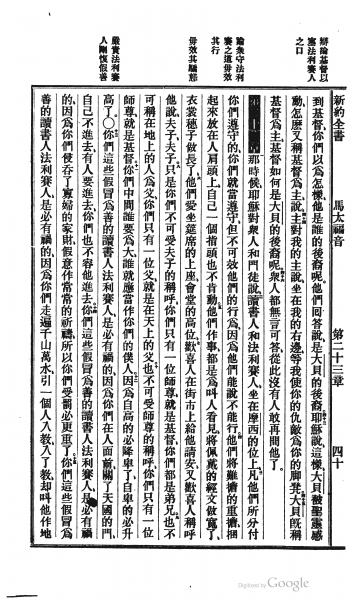 新約全書 馬太福音 第二十三章 四十
辯論基督以
塞法利賽人
之口
諭衆守法利
賽之道毋效
其行
毋效其驕郡
嚴責法利賽
人剛愎假善
到基督你們以爲怎樣他是誰的後裔呢他們囘答說是大闢的後裔耶穌說這樣大闢被聖靈感
動怎麽又稱基督爲主說主對我的主說坐在我的右邊等我使你的仇敵爲你的脚凳大闢旣稱
基督爲主基督如何是大闢的後裔呢衆人都無言可答從此沒有人敢再問他了
第二十三章 那時候耶穌對衆人和門徒說讀書人和法利賽人坐在摩西的位上凡他們所分付
你們遵守的你們就當遵守但不可效他們的行爲因爲他們能說不能行他們將難擔的重擔捆
起來放在人肩頭上自己一個指頭也不肯動他們作事都是爲叫人看見將佩戴的經文做寬了
衣裳穗子做長了他們愛坐筵席的上座會堂的高位歡喜人在街市上給他請安又歡喜人稱呼
他說夫子夫子只是你們不可受夫子的稱呼你們只有一位師尊就是基督你們都是弟兄也不
可稱在地上的人爲父你們只有一位父就是在天上的父也不可受師尊的稱呼你們只有一位
師尊就是基督你們中間誰要爲大誰就應當作你們的僕人因爲自高的必降卑了自卑的必升
高了○你們這些假冒爲善的讀書人法利賽人是必有禍的因爲你們在人面前關了天國的門
自己不進去有人要進去你們也不容他進去你們這些假冒爲善的讀書人法利賽人是必有禍
的因爲你們侵吞了寡婦的家財假意作常常的祈禱所以你們受罰必更重了你們這些假冒爲
善的讀書人法利賽人是必有禍的因爲你們走遍千山萬水引一個人入教入了教却叫他作地
Digitized by Google